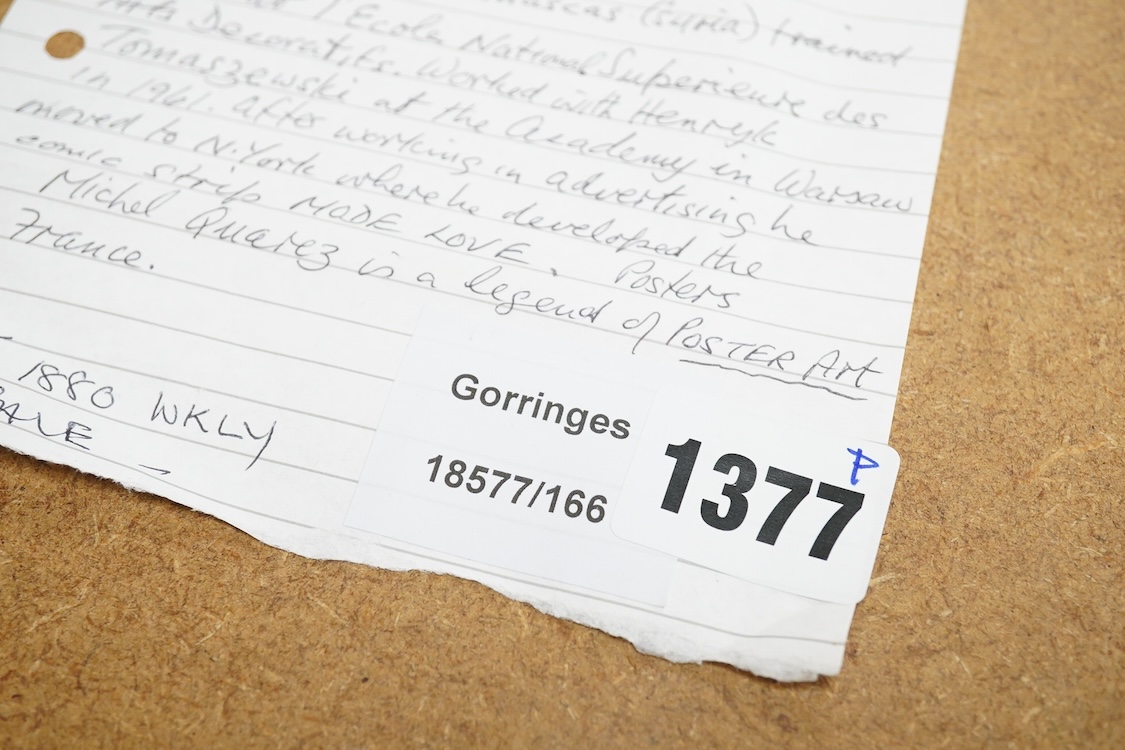 (Syria) trained
l'Ecole National Superieure des
Arts Decoratifs. Worked with Henryk
Tomaszewski at the Academy in Warsaw
in 1961. After working in advertising he
moved to N.York where he developed the
comic strip MODE LOVE. Posters
Michel Quarez is a legend of POSTER Art
France.
1880 WKLY
Gorringes
18577/166
1377